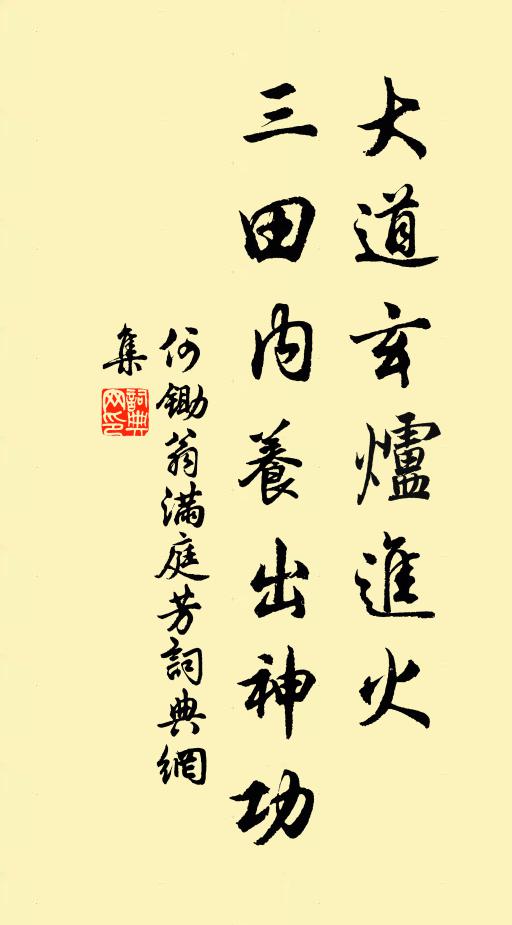 大道玄爐進火
三田內養出神功
何鋤翁滿庭芳詞典網
集
詞典
网印